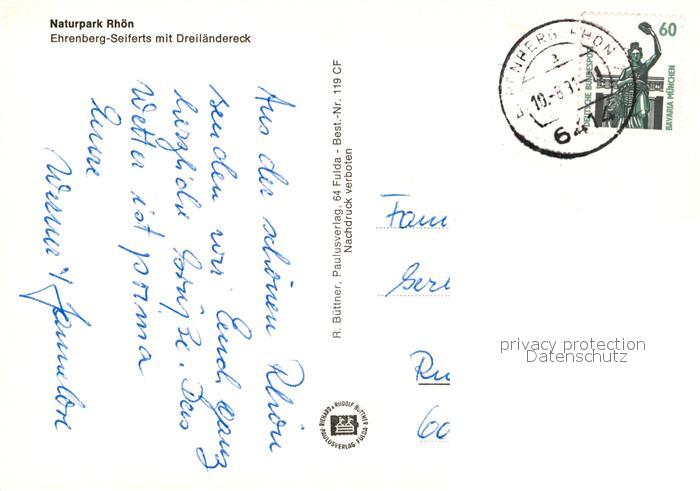 Naturpark Rhön
Ehrenberg-Seiferts mit Dreiländereck
Aus der schönen Rhön
senden wir Euch ganz
herzliche Grüße. Das
Wetter ist prima
Eure
Werner u.
R. Büttner, Paulusverlag, 64 Fulda - Best.-Nr. 119 CF
Nachdruck verboten
RICHARD + RUDOLF BÜTTNER
PAULUSVERLAG · FULDA
EHRENBERG, RHÖN
a
10.-8.91
6414
60
DEUTSCHE BUNDESPOST
BAVARIA MÜNCHEN
Fam
Ger
Ru
60
privacy protection
Datenschutz